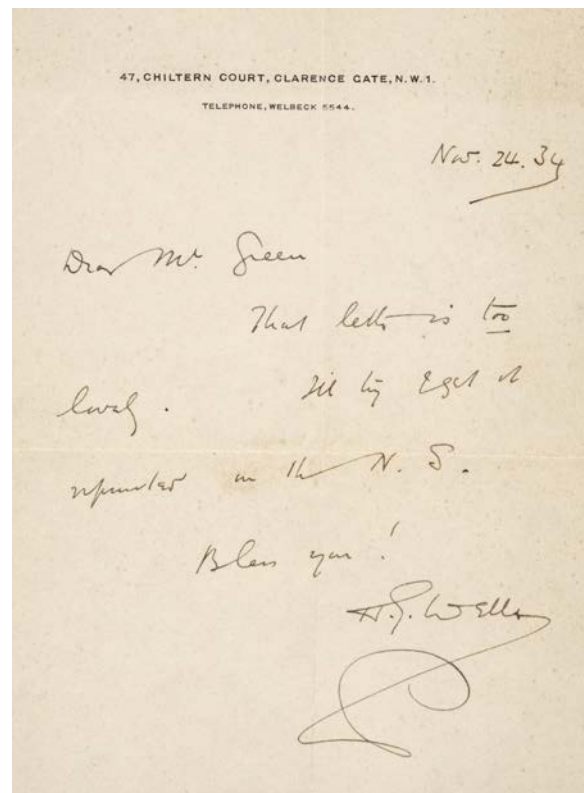 47, CHILTERN COURT, CLARENCE GATE, N.W.1.
TELEPHONE, WELBECK 5544.
Nov. 24. 34
Dear Mr. Green
That letter is too
lovely. I'll try & get it
reprinted in the N. S.
Bless you!
H. G. Wells